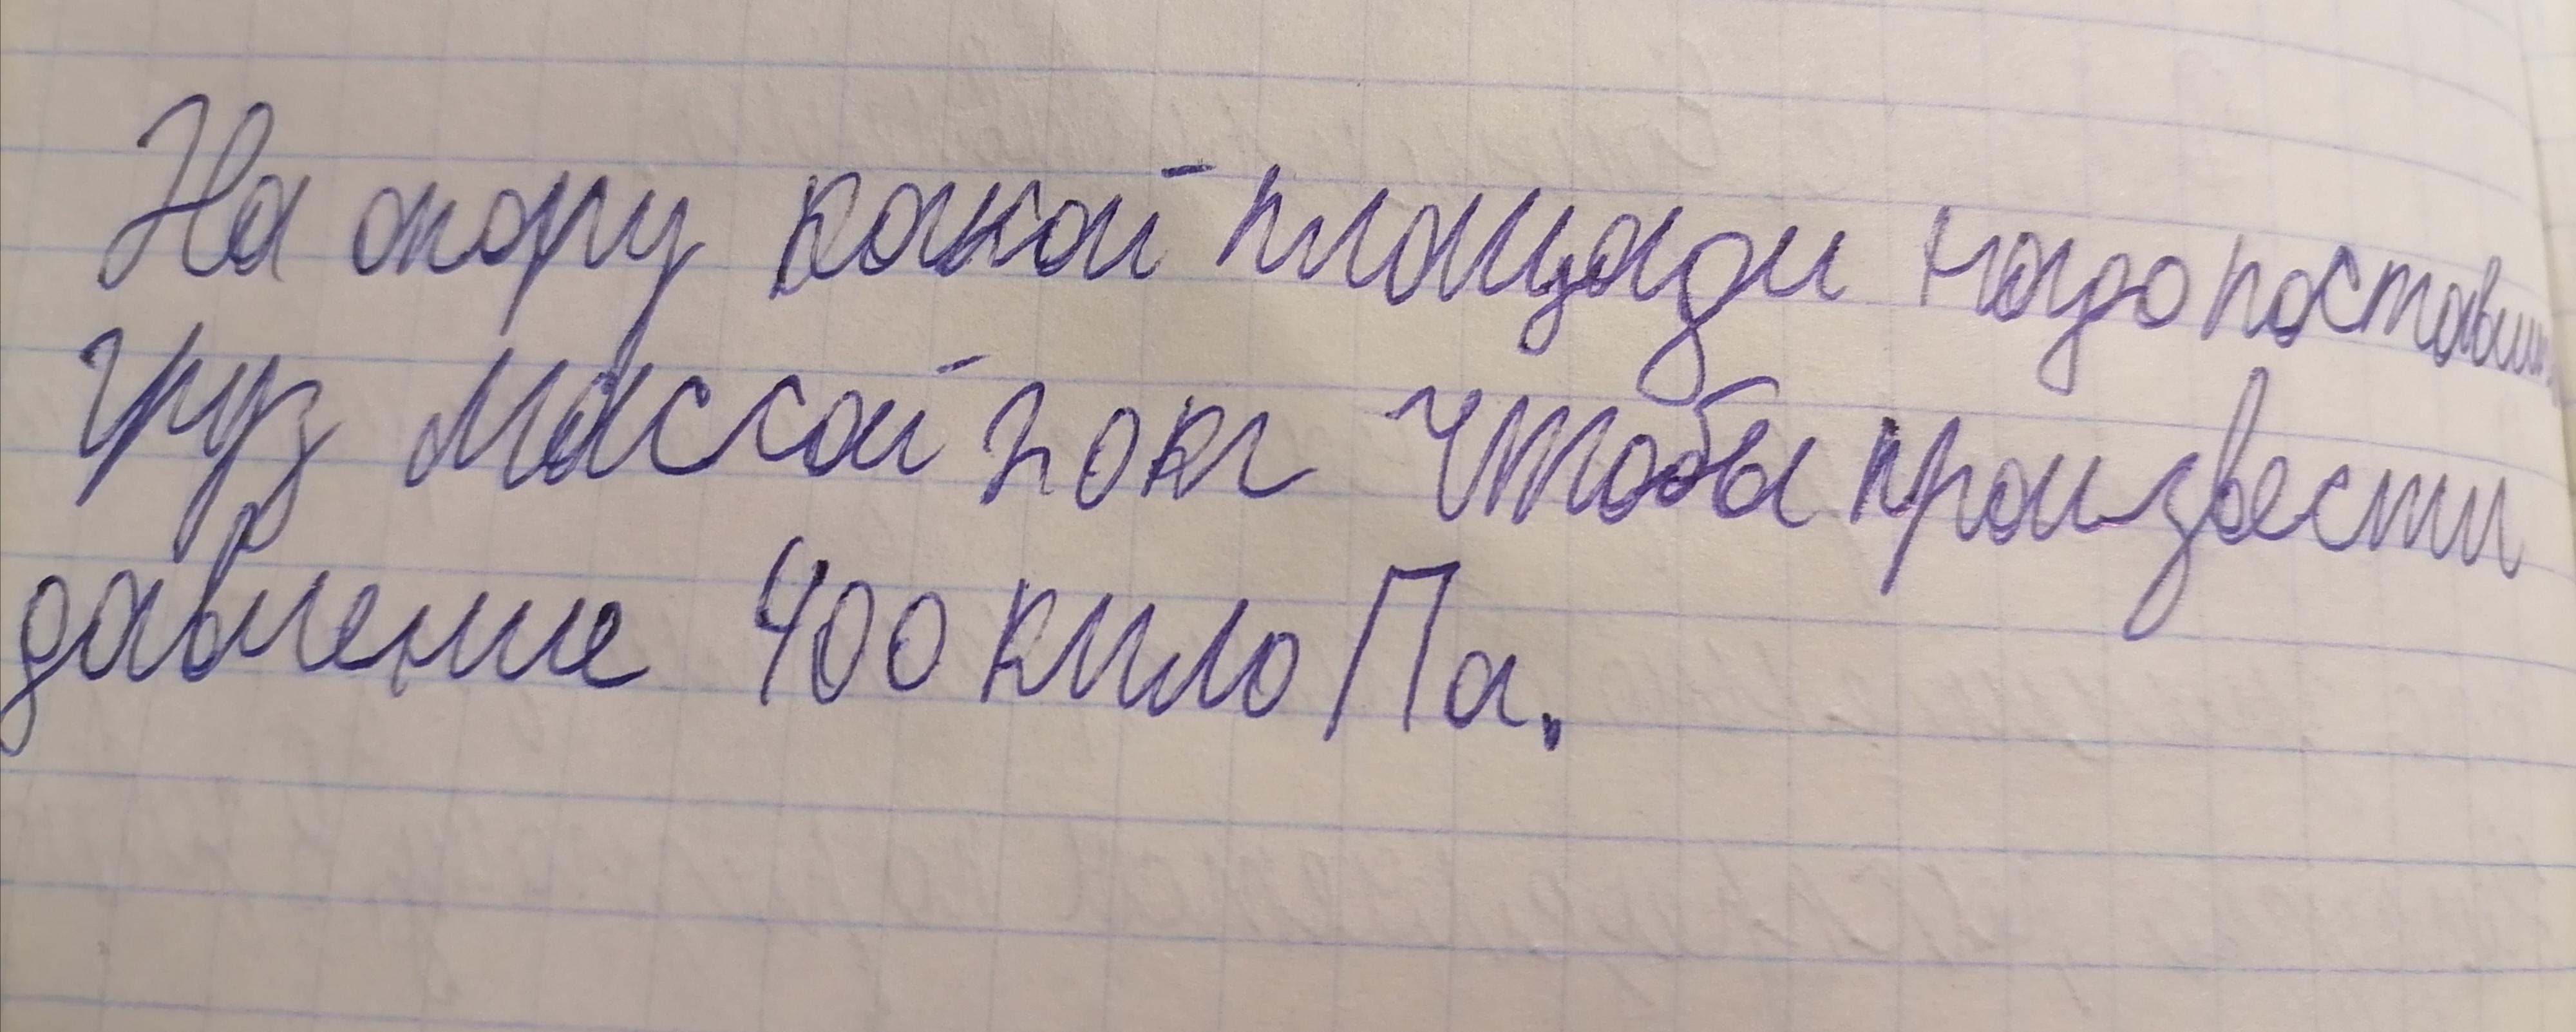 На опору какой площади надо поставить
груз массой 20 кг чтобы произвести
давление 400 кило Па.